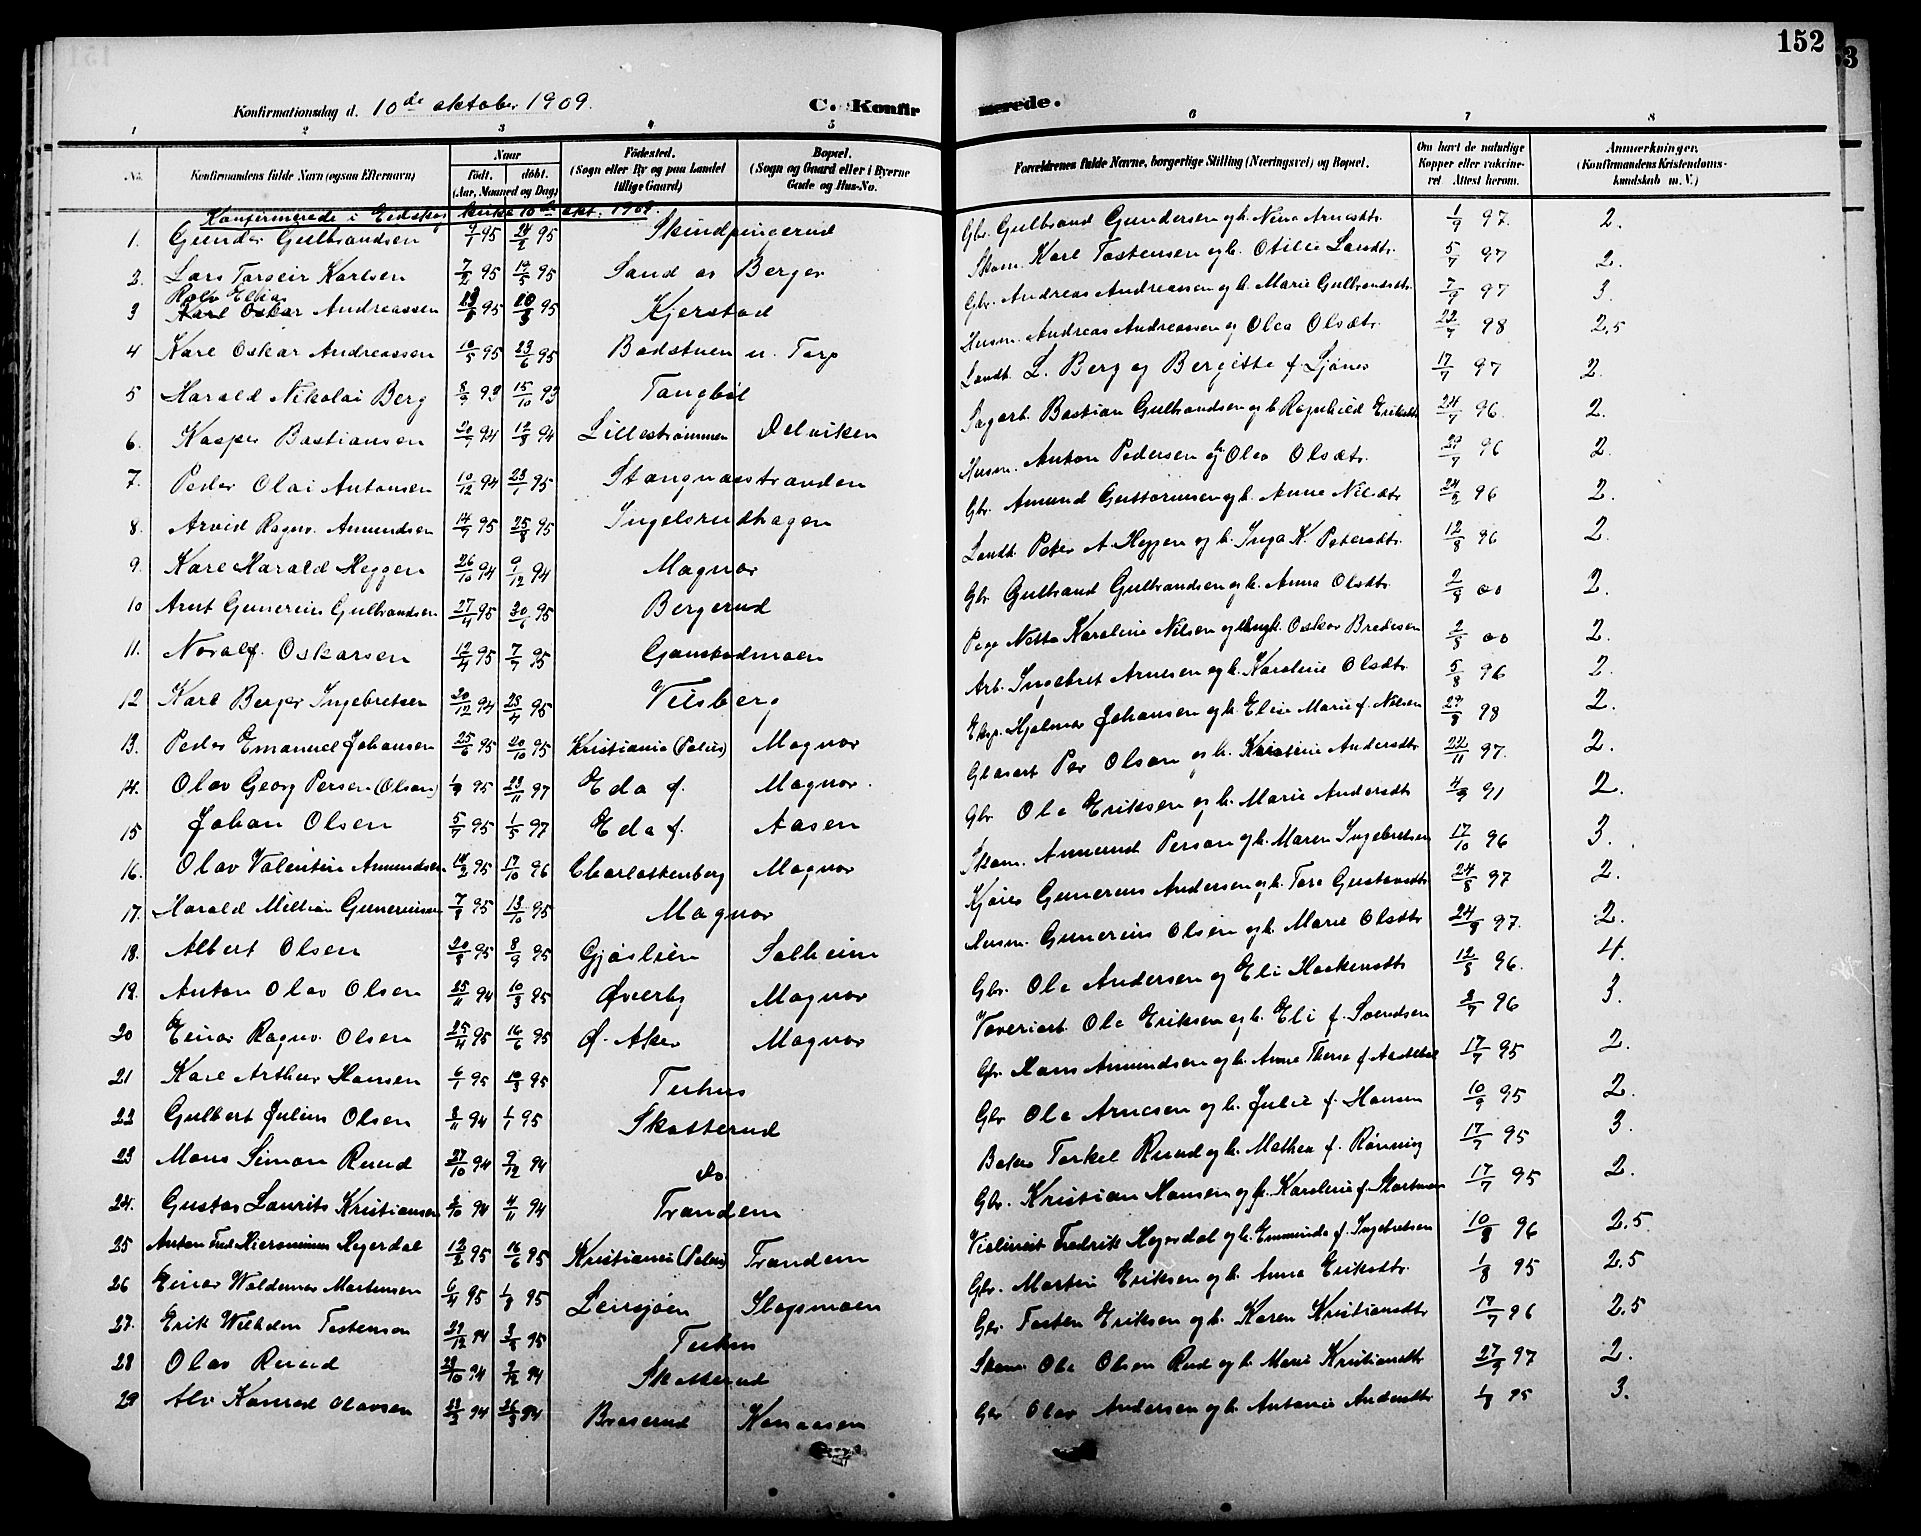 152
Konfirmationsdag d. 10de oktober 1909.
C. Konfirmerede.
1 2 3 4 5 6 7 8
No.
Konfirmandens fulde Navn (ogsaa Efternavn)
Naar
Født. døbt.
(Aar, Maaned og Dag)
Fødested.
(Sogn eller By og paa Landet
tillige Gaard)
Bopæl.
(Sogn og Gaard eller i Byerne
Gade og Hus-No.
Forældrenes fulde Navne, borgerlige Stilling (Næringsvei) og Bopæl.
Om havt de naturlige
Kopper eller vaccineret. Attest herom.
Anmerkninger.
(Konfirmandens Kristendomskundskab m. V.)
Konfirmerede i Eidskog kirke 10de okt. 1909.
1. Gunder Gulbrandsen 95 95 Gbr. Gulbrand Gundersen og h. 1/9 97. 2.
2. Lars Karlsen 7/2 95 12/5 95 Sand os Berger Skom. Karl Tostensen og h. Otilie 5/7 97 2.
Rolv Elias
3 Karl Oskar Andreassen 95 95 Kjerstad Gbr. Andreas Andreassen og h. Marie Gulbrandsdtr. 7/9 97 3.
4 Karl Oskar Andreassen 10/5 95 23/6 95 Badstuen u. Torp Husm. Andreas Andreassen og Olea Olsdtr. 98 2.5
5 Harald Nikolai Berg 93 15/10 93 Tangbøl Landh. L. Berg og Bergitte f. 17/7 97 2.
6. Kasper Bastiansen 94 94 Lillestrømmen Delviken Sagarb. Bastian Gulbrandsen og h. Ragnhild Eriksdtr. 24/7 96. 2.
7. Peder Olai Antonsen 10/12 94 23/1 95 Stangnæsstranden Husm. Anton Pedersen og h. Olea Olsdtr. 96 2.
8. Arvid Ragnv. Amundsen 14/7 95 25/8 95 Ingelsrudhagen Gbr. Amund og h. Anne Nilsdtr. 96 2.
9. Karl Harald Heggen 26/10 94 9/12 94 Magnor Landh. Peter A. Heggen og h. Inga K. Petersdtr. 12/8 96 2.
10 Arnt Gunerius Gulbrandsen 27/4 95 95 Bergerud Gbr. Gulbrand Gulbrandsen og h. Anna Olsdtr. 2/8 00 2.
11. Noralf. Oskarsen 12/4 95 7/7 95 Gaustadmoen Pige Netta Karoline Nilsen og Oskar Bredesen 2/8 00 2.
12 Karl Berger Ingebretsen 20/12 94 95 Vilsberg Arb. Ingebret Arnesen og h. Karoline Olsdtr. 5/8 96 2.
13. Peder Emanuel Johansen 25/6 95 20/10 95 Kristiania (Palus) Magnor Eksp. Hjalmar Johansen og h. Elise Marie f. Nilsen 98 2.
14. Olav Georg Persen (Olson) 95 23/11 97 Eda f. Magnor. Glasarb. Per Olson og h. Kristine Andersdtr 22/11 97. 2.
15 Johan Olsen 5/7 95 1/5 97 Eda f. Aasen Gbr. Ole Eriksen og h. Marie Andersdtr 4/9 91 2.
16. Olav Valentin Amundsen 14/2 95 17/10 96 Charlottenberg Magnor Skom. Amund Person og h. Maren Ingebretsen 17/10 96 3.
17. Harald Milian Guneriusen 7/8 95 13/10 95 Magnor Kjører Gunerius Andersen og h. Tora Gustavsdtr 24/8 97 2.
18. Albert Olsen 20/8 95 8/9 95 Gjøslien Solheim Husm. Gunerius Olsen og h. Marie Olsdtr 24/8 97. 2.
19. Anton Olav Olsen 25/11 94 10/3 95 Øverby Magnor Gbr. Ole Andersen og Eli Haakensdtr 12/8 96. 4.
20 Einar Ragnv. Olsen 25/4 95 16/6 95 Ø. Aker Magnor Væveriarb. Ole Eriksen og h. Eli f. Svendsen 2/7 96 3.
21 Karl Arthur Hansen 6/1 95 10/3 95 Tuhus Gbr. Hans Amundsen og h. Anne Therese f. 17/7 95 2.
22 Gulbert Julius Olsen 8/11 94 1/1 95 Skotterud Gbr. Ole Arnesen og h. Julie f. Hansen 10/9 95 2.
23 Mons Simon Ruud 27/10 94 9/12 94 do. Baker Torkel Ruud og h. Mathea f. Rønning 17/7 95 3.
24. Gustav Laurits Kristiansen 2/10 94 4/11 94 Trandem Gbr. Kristian Hansen og h. Karoline f. 17/7 95 2.
25 Anton Fred. Hieronimus Hejerdal 12/2 95 16/6 95 Kristiania (Palus) Trandem Violinist Fredrik Hejerdal og h. Emmerida f. Ingebretsen 10/8 96 2.5
26 Einar Waldemar Martinsen 6/4 95 95 Leirsjøen Slagsmoen Gbr. Martin Eriksen og h. Anna Eriksdtr. 1/8 95 2.5
27. Erik Wilhelm Tostensen 94 95 Tuhus Gbr. Tosten Eriksen og h. Karen Kristiansdtr 17/7 96 2.5
28 Olav Ruud 94 94 Skotterud Skom. Ole Olsen Rud og h. Marie Kristiansdtr 97 2.
29 Alv Konrad Olavsen 94 94 Braserud Kanaasen Gbr Olav Andersen og h. Antonie Andersdtr 95 3.